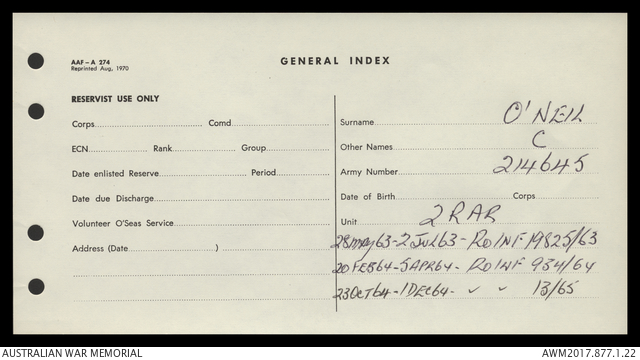 AAF – A 274
Reprinted Aug, 1970
GENERAL INDEX
RESERVIST USE ONLY
Corps Comd
ECN Rank Group
Date enlisted Reserve Period
Date due Discharge
Volunteer O'Seas Service
Address (Date )
Surname O'NEIL
Other Names C
Army Number 214645
Date of Birth Corps
Unit 2 RAR
28MAY63-2JUL63-RO INF 19825/63
20FEB64-5APR64-RO INF 934/64
23OCT64-1DEC64- ✓ ✓ 13/65
AUSTRALIAN WAR MEMORIAL AWM2017.877.1.22